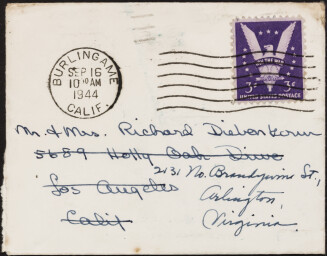 BURLINGAME
SEP 16
10 30 AM
1944
CALIF.
WIN THE WAR
3¢ 3¢
UNITED STATES POSTAGE
Mr & Mrs. Richard Diebenkorn
5659 Holly Oak Drive
2131 No. Brandywine St.,
Los Angeles
Arlington,
Calif
Virginia.